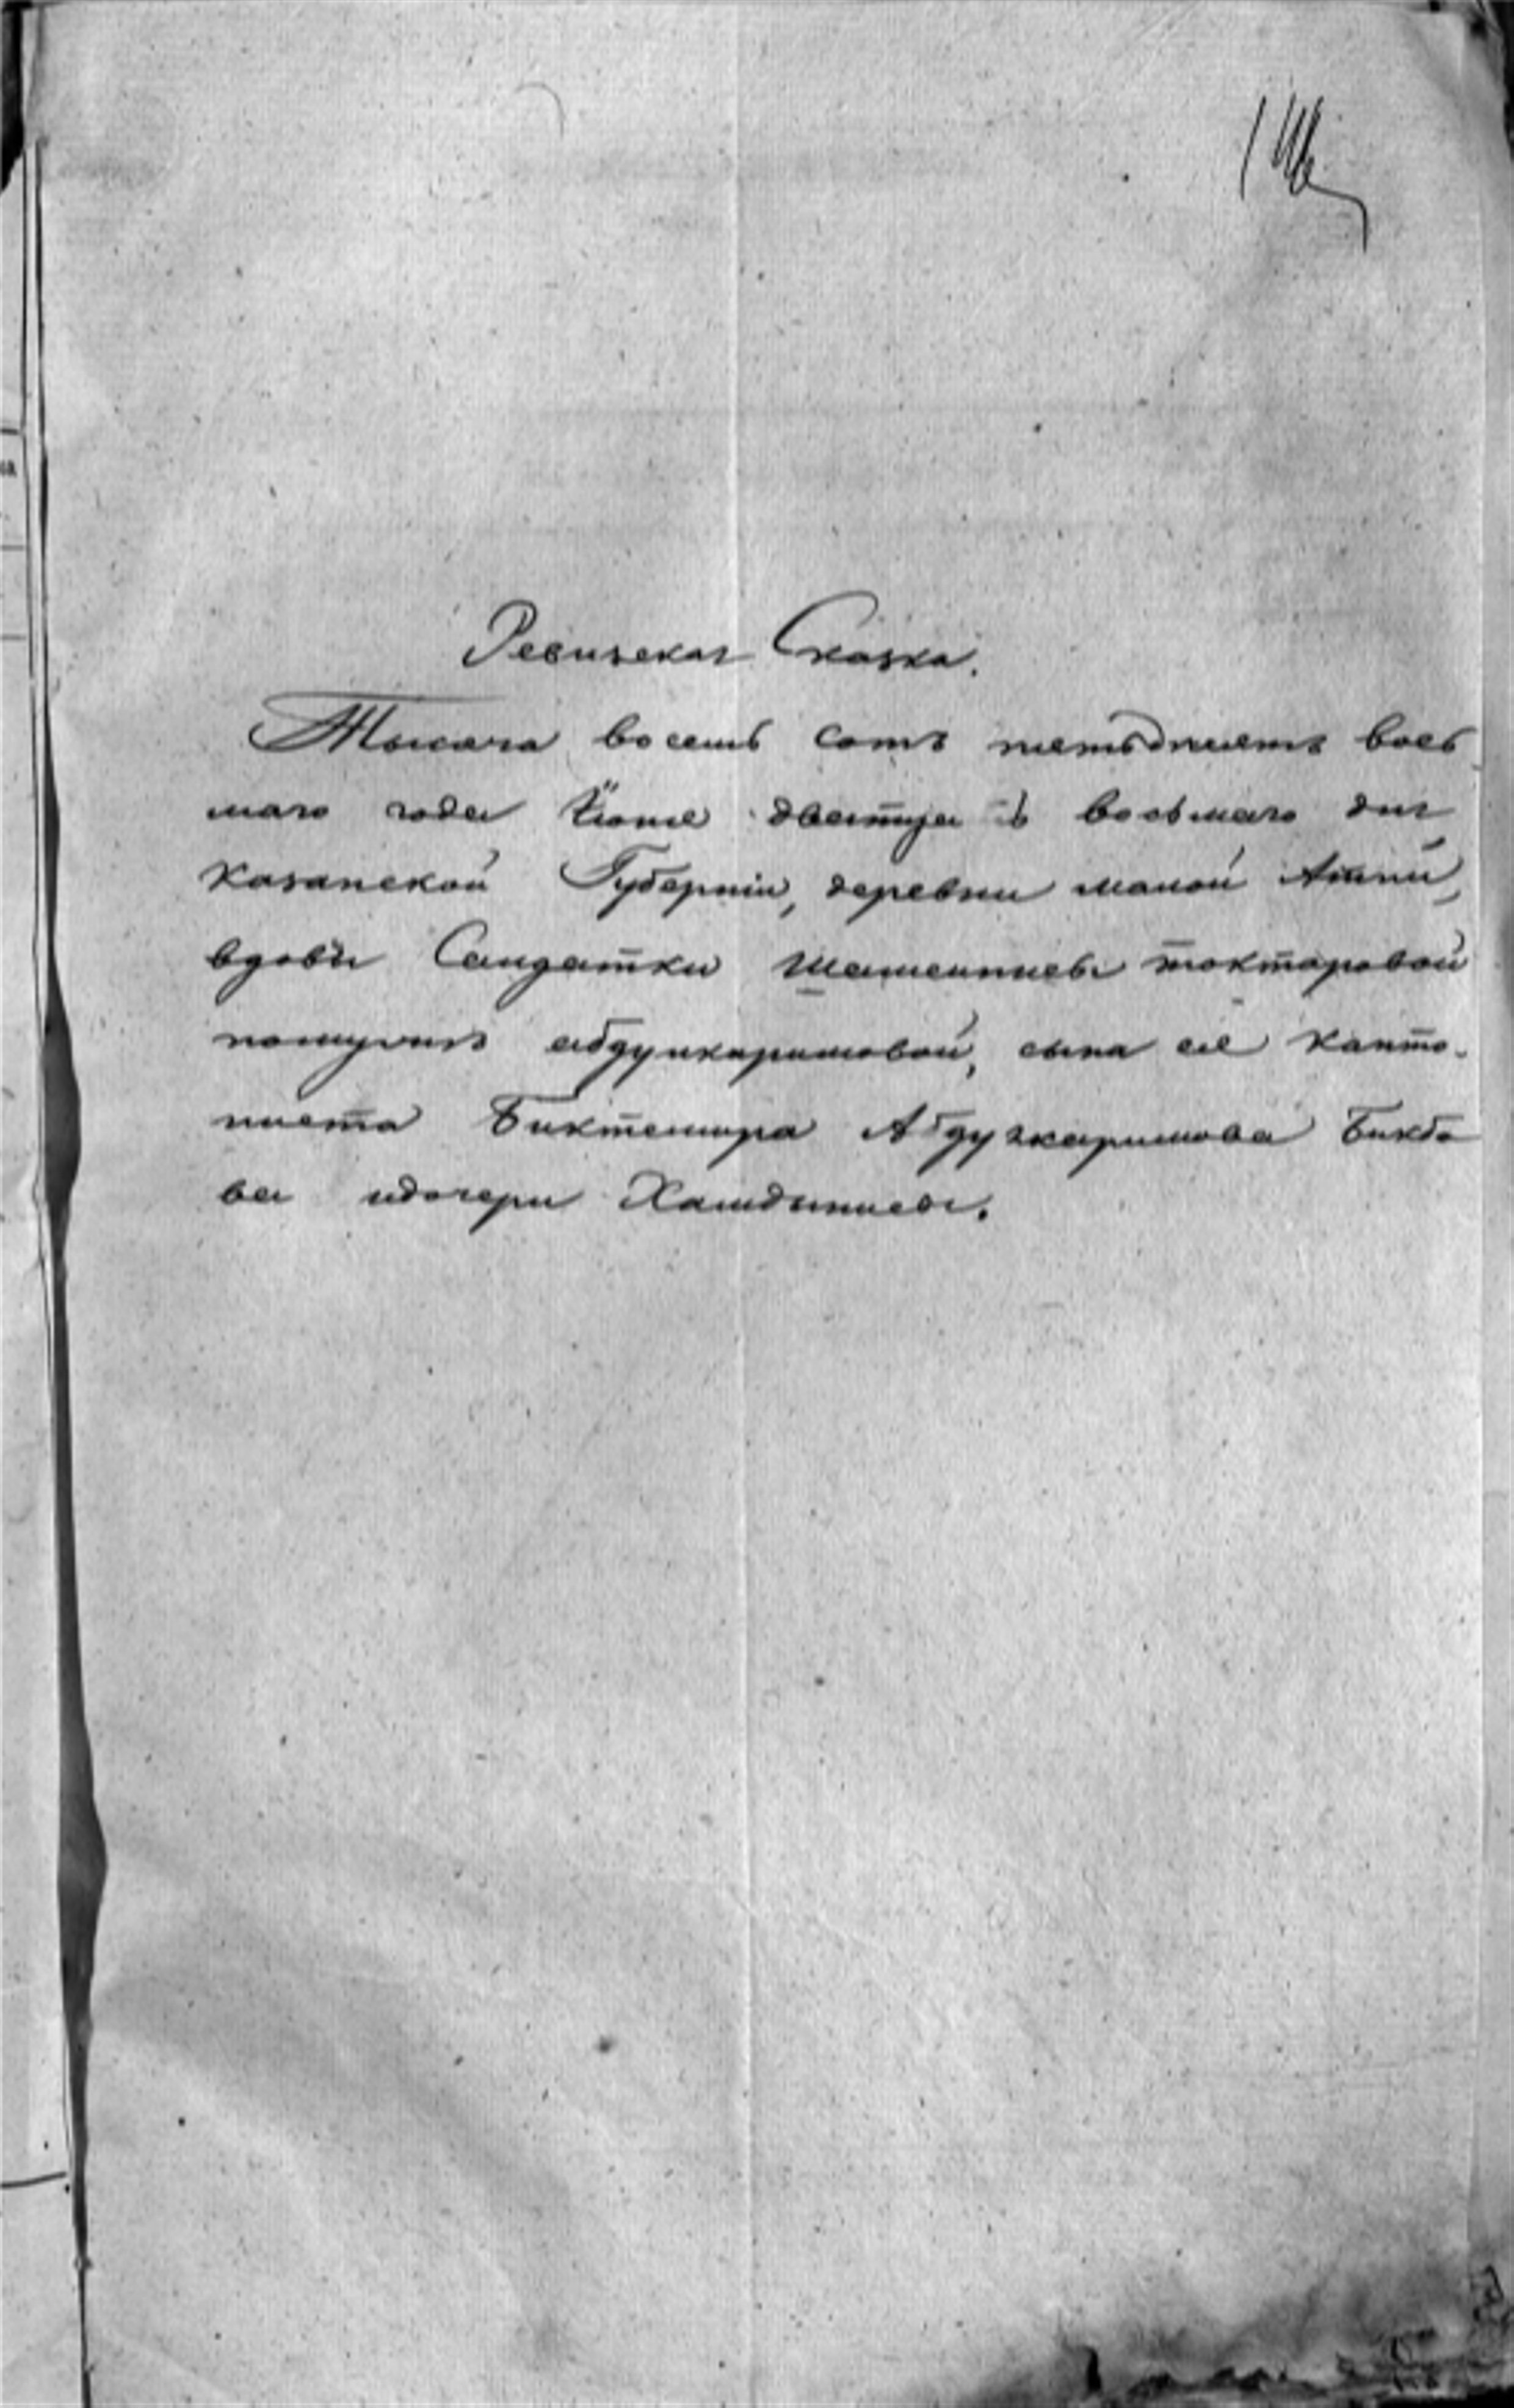 Ревизская Сказка.
Тысяча восемь сотъ пятьдесятъ вось
маго года Июня двατцать восьмаго дня
Казанской Губерніи, деревни малой Атни,
вдовы Салдатки Шамсинисы токтаровой
помужъ абдулкаримовой, сына ее Канто-
ниста Биктемира Абдулкаримова Бикбо
ва идочери Хамдинисы.